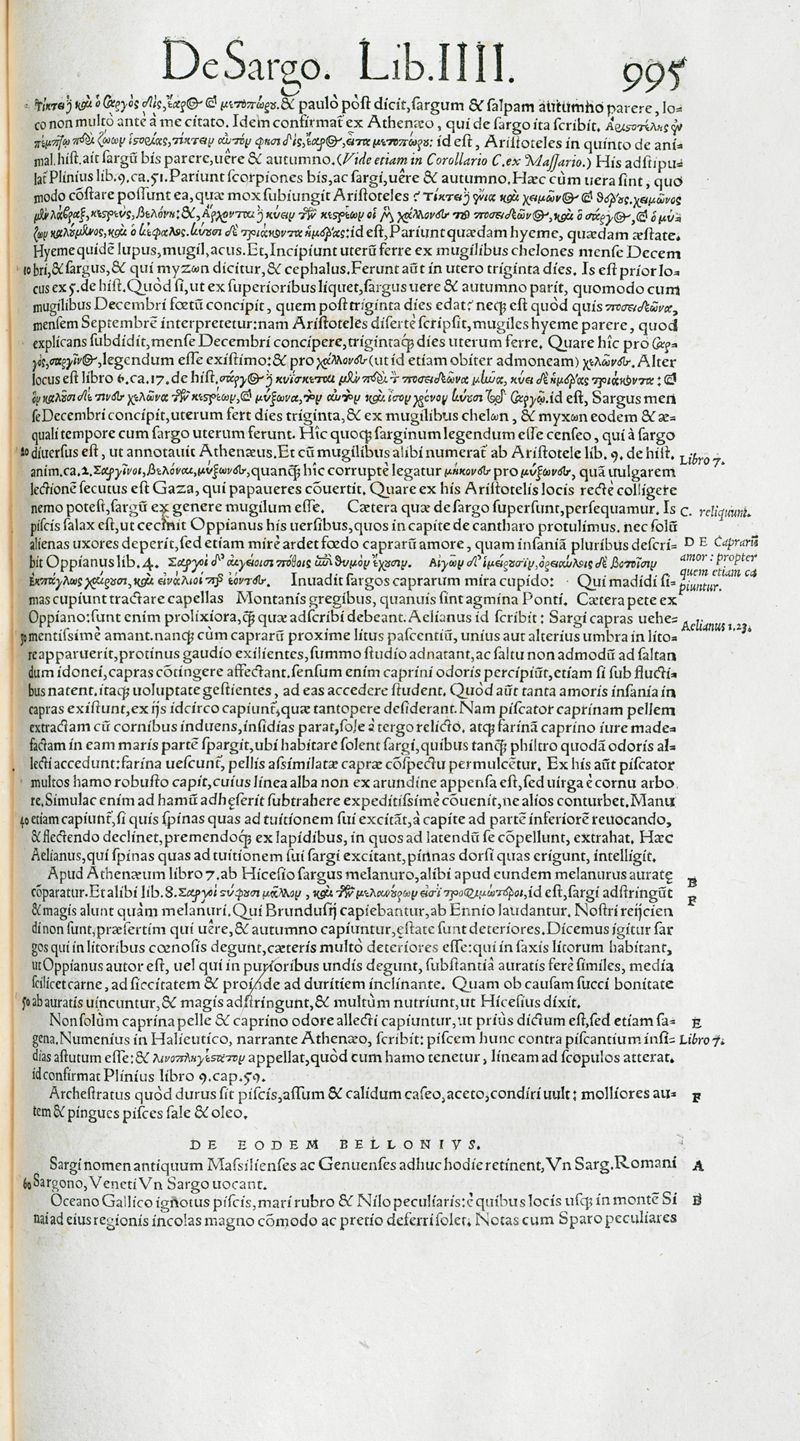 De Sargo. Lib. IIII. 995
τίκτει ἢ καὶ ὁ σαργὸς δὶς, ἔαρος καὶ μετοπώρου. & paulò pòst dicit, sargum & salpam autumno parere, lo-
co non multo ante à me citato. Idem confirmat̃ ex Athenæo, qui de sargo ita scribit. Ἀριστοτέλης ἐν
πέμπτῳ ζώων ἱστορίας, τίκτειν αὐτόν φησι δὶς, ἔαρος, εἶτα μετοπώρου: id est, Aristoteles in quinto de ani
mal. hist. ait sargũ bis parere, uêre & autumno. (Vide etiam in Corollario C. ex Massario.) His adstipu-
lat̃ Plinius lib. 9. ca. 51. Pariunt scorpiones bis, ac sargi, uêre & autumno. Hæc cùm uera sint, quo
modo cõstare possunt ea, quæ mox subiungit Aristoteles? Τίκτει
Hyeme quidẽ lupus, mugil, acus. Et, Incipiunt uterũ ferre ex mugilibus chelones mense Decem
10 bri, & sargus, & qui myzων dicitur, & cephalus. Ferunt aũt in utero triginta dies. Is est prior lo-
cus ex 5. de hist. Quòd si, ut ex superioribus liquet, sargus uere & autumno parit, quomodo cum
mugilibus Decembri fœtũ concipit, quem post triginta dies edat? neq; est quòd quis ποσειδεῶνα,
mensem Septembrẽ interpretetur: nam Aristoteles disertè scripsit, mugiles hyeme parere, quod
explicans subdidit, mense Decembri concipere, trigintaq; dies uterum ferre. Quare hîc pro σαρ-
γὸς, σαργῖνος, legendum esse existimo: & pro χάλλονες (ut id etiam obiter admoneam) χελῶνες. Alter
locus est libro 6. ca. 17. de hist. id est, Sargus men
se Decembri concipit, uterum fert dies triginta, & ex mugilibus chelωn, & myxωn eodem & æ-
quali tempore cum sargo uterum ferunt. Hîc quoq; sarginum legendum esse censeo, qui à sargo
20 diuersus est, ut annotauit Athenæus. Et cũ mugilibus alibi numerat̃ ab Aristotele lib. 9. de hist.
Libro 7.
anim. ca. 2. Σαργῖνοι, βελόναι, μύξωνες, quanq̃ hîc corruptè legatur μήκωνες pro μύξωνες, quã uulgarem
lectionẽ secutus est Gaza, qui papaueres cõuertit. Quare ex his Aristotelis locis rectè colligere
nemo potest, sargũ ex genere mugilum esse. Cætera quæ de sargo supersunt, persequamur. Is
C. reliquũnt.
piscis salax est, ut cecinit Oppianus his uersibus, quos in capite de cantharo protulimus. nec solũ
alienas uxores deperit, sed etiam mirè ardet fœdo caprarũ amore, quam insaniã pluribus descri-
D E Caprarũ
bit Oppianus lib. 4. Σαργοὶ δ' αἰγείοισι πόθοις ἐπὶ θυμὸν ἔχουσιν. Αἰγῶν δ' ἱμείρουσιν, ὀρειαύλοις δὲ βοτοῖσιν
amor: propter
Ἐκπάγλως χαίρουσι, καὶ εἰνάλιοί περ ἐόντες. Inuadit sargos caprarum mira cupido: Qui madidi si-
quem etiam ca
piuntur.
mas cupiunt tractare capellas Montanis gregibus, quanuis sint agmina Ponti. Cætera pete ex
Oppiano: sunt enim prolixiora, q̃; quæ adscribi debeant. Aelianus id scribit: Sargi capras uehe-
Aelianus 1.23.
30 mentissimè amant. nanq; cùm caprarũ proxime litus pascentiũ, unius aut alterius umbra in lito-
re apparuerit, protinus gaudio exilientes, summo studio adnatant, ac saltu non admodũ ad saltan
dum idonei, capras cõtingere affectant. sensum enim caprini odoris percipiũt, etiam si sub flucti-
bus natent. itaq; uoluptate gestientes, ad eas accedere student. Quòd aũt tanta amoris insania in
capras existunt, ex ijs idcirco capiunt̃, quæ tantopere desiderant. Nam piscator caprinam pellem
extractam cũ cornibus induens, insidias parat, sole à tergo relicto. atq; farinã caprino iure made-
factam in eam maris partẽ spargit, ubi habitare solent sargi, quibus tanq̃; philtro quodã odoris al-
lecti accedunt: farina uescunt̃, pellis assimilatæ capræ cõspectu permulcẽtur. Ex his aũt piscator
multos hamo robusto capit, cuius linea alba non ex arundine appensa est, sed uirga è cornu arbo
re. Simulac enim ad hamũ adhęserit subtrahere expeditissimè cõuenit, ne alios conturbet. Manu
40 etiam capiunt̃, si quis spinas quas ad tuitionem sui excitãt, à capite ad partẽ inferiorẽ reuocando,
& flectendo declinet, premendoq; ex lapidibus, in quos ad latendũ se cõpellunt, extrahat. Hæc
Aelianus, qui spinas quas ad tuitionem sui sargi excitant, pinnas dorsi quas erigunt, intelligit.
Apud Athenæum libro 7. ab Hicesio sargus melanuro, alibi apud eundem melanurus auratę
B
cõparatur. Et alibi lib. 8. Σαργοὶ στύφουσι μᾶλλον, καὶ τῶν μελανούρων εἰσὶ τροφιμώτεροι, id est, sargi adstringũt
F
& magis alunt quàm melanuri. Qui Brundusij capiebantur, ab Ennio laudantur. Nostri reijcien
di non sunt, præsertim qui uêre, & autumno capiuntur, ęstate sunt deteriores. Dicemus igitur sar
gos qui in litoribus cœnosis degunt, cæteris multò deteriores esse: qui in saxis litorum habitant,
ut Oppianus autor est, uel qui in purioribus undis degunt, substantiâ auratis ferè similes, media
scilicet carne, ad siccitatem & proinde ad duritiem inclinante. Quam ob causam succi bonitate
50 ab auratis uincuntur, & magis adstringunt, & multùm nutriunt, ut Hicesius dixit.
Non solùm caprina pelle & caprino odore allecti capiuntur, ut priùs dictum est, sed etiam sa-
E
gena. Numenius in Halieutico, narrante Athenæo, scribit: piscem hunc contra piscantium insi-
Libro 7.
dias astutum esse: & λινοπληγέστατον appellat, quòd cum hamo tenetur, lineam ad scopulos atterat.
id confirmat Plinius libro 9. cap. 59.
Archestratus quòd durus sit piscis, assum & calidum caseo, aceto, condiri uult: molliores au-
F
tem & pingues pisces sale & oleo.
DE EODEM BELLONIVS.
Sargi nomen antiquum Massilienses ac Genuenses adhuc hodie retinent, Vn Sarg. Romani
A
60 Sargono, Veneti Vn Sargo uocant.
Oceano Gallico ignotus piscis, mari rubro & Nilo peculiaris: è quibus locis usq; in montẽ Si
B
nai ad eius regionis incolas magno cõmodo ac precio deferri solet. Notas cum Sparo peculiares